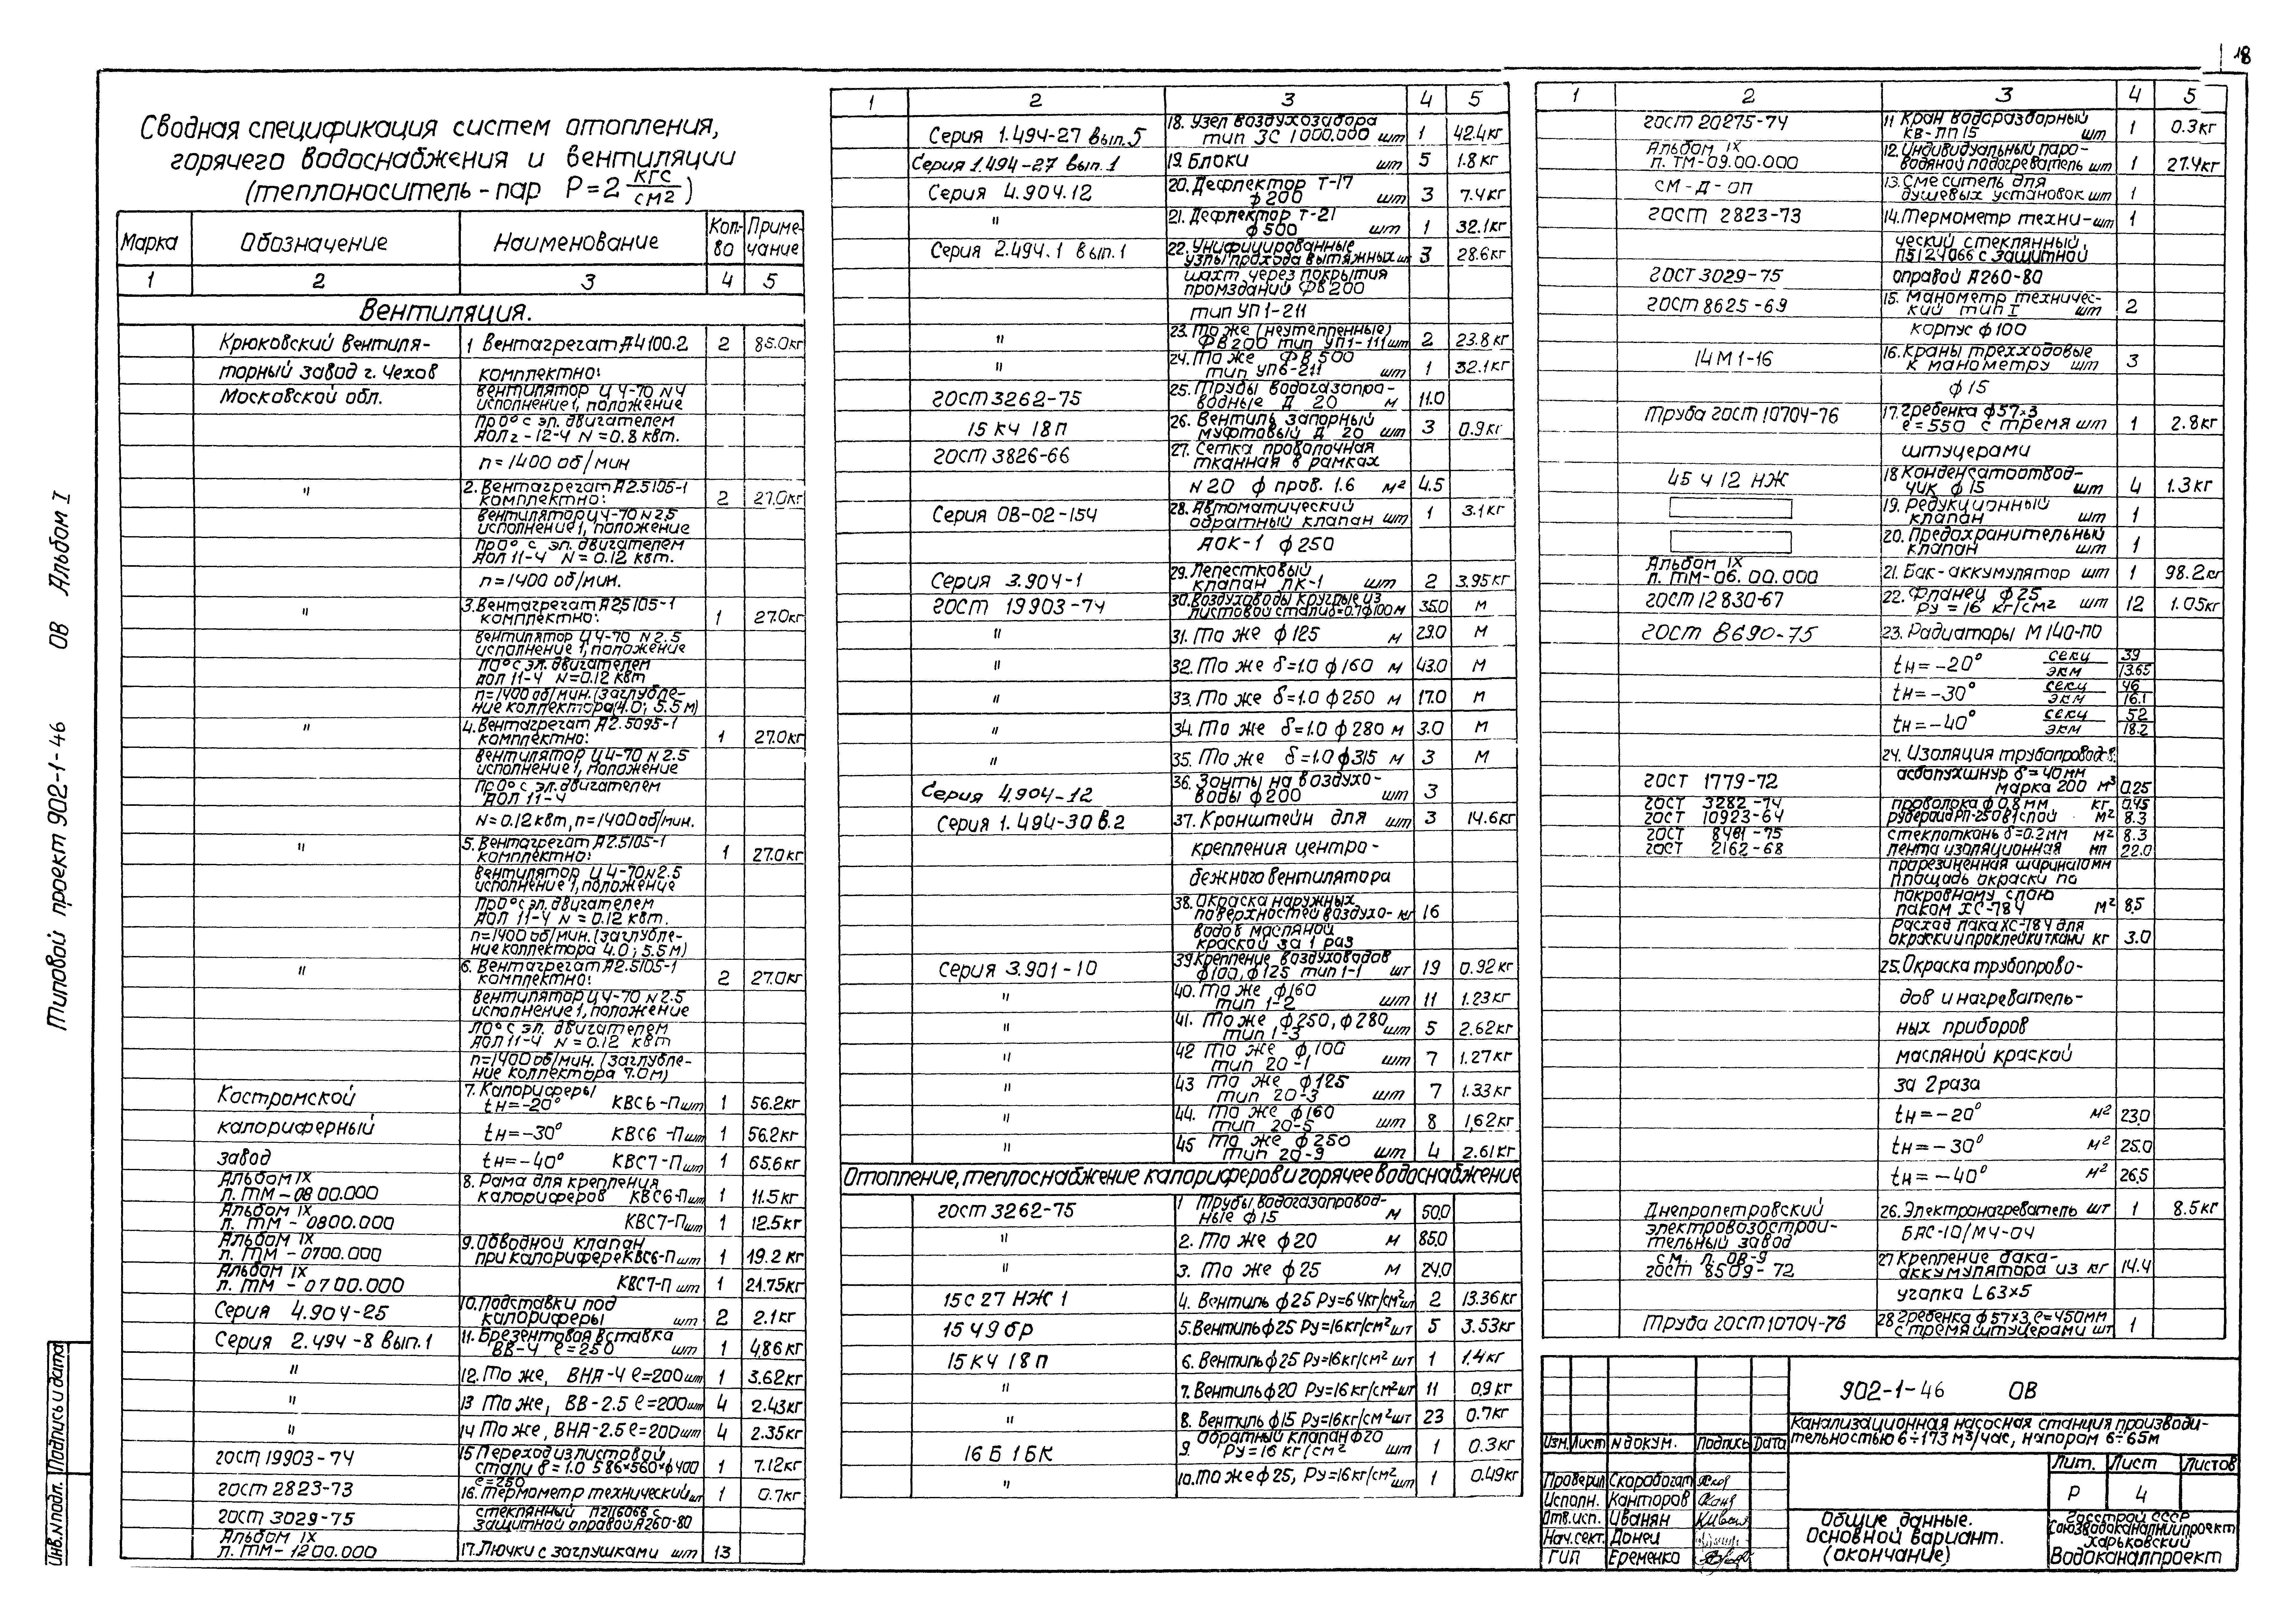 18
Сводная спецификация систем отопления,
горячего водоснабжения и вентиляции
(теплоноситель - пар P=2 кгс/см2)
Марка Обозначение Наименование Кол-во Примечание
1 2 3 4 5
Вентиляция.
Крюковский вентиля- 1 Вентагрегат А4100.2 2 85.0кг
торный завод г. Чехов комплектно:
Московской обл. вентилятор Ц 4-70 N4
исполнение 1, положение
Пр0° с эл. двигателем
АОЛ2-12-4 N=0.8 квт.
n=1400 об/мин
" 2. Вентагрегат А2.5105-1
комплектно: 2 27.0кг
вентилятор Ц4-70 N2.5
исполнение 1, положение
Пр0° с эл. двигателем
АОЛ 11-4 N=0.12 квт.
n=1400 об/мин.
" 3. Вентагрегат А25105-1
комплектно: 1 27.0кг
вентилятор Ц4-70 N2.5
исполнение 1, положение
Л0° с эл. двигателем
АОЛ 11-4 N=0.12 квт
n=1400 об/мин. (заглубле-
ние коллектора (4.0; 5.5м)
" 4. Вентагрегат А2.5095-1
комплектно: 1 27.0кг
вентилятор Ц4-70 N2.5
исполнение 1, положение
Пр0° с эл. двигателем
АОЛ 11-4
N=0.12 квт, n=1400 об/мин.
" 5. Вентагрегат А2.5105-1
комплектно: 1 27.0кг
вентилятор Ц4-70 N2.5
исполнение 1, положение
Пр0° с эл. двигателем
АОЛ 11-4 N=0.12 квт.
n=1400 об/мин. (заглубле-
ние коллектора 4.0; 5.5м)
" 6. Вентагрегат А2.5105-1
комплектно: 2 27.0кг
вентилятор Ц4-70 N2.5
исполнение 1, положение
Л0° с эл. двигателем
АОЛ 11-4 N=0.12 квт
n=1400 об/мин. (заглубле-
ние коллектора 7.0м)
Костромской 7. Калориферы
tн=-20° КВС6-П шт 1 56.2кг
калориферный tн=-30° КВС6-П шт 1 56.2кг
завод tн=-40° КВС7-П шт 1 65.6кг
Альбом IX 8. Рама для крепления
л. ТМ-08 00.000 калориферов КВС6-П шт 1 11.5кг
Альбом IX
л. ТМ-0800.000 КВС7-П шт 1 12.5кг
Альбом IX 9. Обводной клапан
л. ТМ-0700.000 при калорифере КВС6-П шт 1 19.2кг
Альбом IX
л. ТМ-0700.000 КВС7-П шт 1 21.75кг
Серия 4.904-25 10. Подставки под
калориферы шт 2 2.1кг
Серия 2.494-8 вып.1 11. Брезентовая вставка
ВВ-4 ℓ=250 шт 1 4.86кг
" 12. То же, ВНА-4 ℓ=200 шт 1 3.62кг
" 13 То же, ВВ-2.5 ℓ=200 шт 4 2.43кг
" 14 То же, ВНА-2.5 ℓ=200 шт 4 2.35кг
ГОСТ 19903-74 15 Переход из листовой
стали δ=1.0 586×560×ф400 1 7.12кг
ℓ=250
ГОСТ 2823-73 16. Термометр технический шт 1 0.7кг
ГОСТ 3029-75 стеклянный П2116066 с
защитной оправой А260-80
Альбом IX
л. ТМ-1200.000 17. Лючки с заглушками шт 13
1 2 3 4 5
Серия 1.494-27 вып.5 18. Узел воздухозабора
тип ЗС 1000.000 шт 1 42.4кг
Серия 1.494-27 вып.1 19. Блоки шт 5 1.8кг
Серия 4.904.12 20. Дефлектор Т-17
ф200 шт 3 7.4кг
" 21. Дефлектор Т-21
ф500 шт 1 32.1кг
Серия 2.494.1 вып.1 22. Унифицированные
узлы прохода вытяжных шт 3 28.6кг
шахт через покрытия
промзданий ФВ200
тип УП1-211
" 23. То же (неутепленные)
ФВ200 тип УП1-111 шт 2 23.8кг
" 24. То же ФВ500
тип УП6-211 шт 1 32.1кг
ГОСТ 3262-75 25. Трубы водогазопро-
водные Д 20 м 11.0
15 КЧ 18П 26. Вентиль запорный
муфтовый Д 20 шт 3 0.9кг
ГОСТ 3826-66 27. Сетка проволочная
тканная в рамках
N20 ф пров. 1.6 м2 4.5
Серия ОВ-02-154 28. Автоматический
обратный клапан шт 1 3.1кг
АОК-1 ф250
Серия 3.904-1 29. Лепестковый
клапан ЛК-1 шт 2 3.95кг
ГОСТ 19903-74 30. Воздуховоды круглые из
листовой стали δ=0.7ф100м 35.0 м
" 31. То же ф125 м 29.0 м
" 32. То же δ=1.0 ф160 м 43.0 м
" 33. То же δ=1.0 ф250 м 17.0 м
" 34. То же δ=1.0 ф280 м 3.0 м
" 35. То же δ=1.0 ф315 м 3 м
Серия 4.904-12 36. Зонты на воздухо-
воды ф200 шт 3
Серия 1.494-30 в.2 37. Кронштейн для шт 3 14.6кг
крепления центро-
бежного вентилятора
38. Окраска наружных
поверхностей воздухо- кг 16
водов масляной
краской за 1 раз
Серия 3.901-10 39 Крепление воздуховодов
ф100, ф125 тип 1-1 шт 19 0.92кг
" 40. То же ф160
тип 1-2 шт 11 1.23кг
" 41. То же ф250, ф280
тип 1-3 шт 5 2.62кг
" 42 То же ф100
тип 20-1 шт 7 1.27кг
" 43 То же ф125
тип 20-3 шт 7 1.33кг
" 44. То же ф160
тип 20-5 шт 8 1,62кг
" 45 То же ф250
тип 20-9 шт 4 2.61кг
Отопление, теплоснабжение калориферов и горячее водоснабжение
ГОСТ 3262-75 1 Трубы водогазопровод-
ные ф15 м 50.0
" 2. То же ф20 м 85.0
" 3. То же ф25 м 24.0
15с 27 НЖ 1 4. Вентиль ф25 Ру=64кг/см2 шт 2 13.36кг
15 Ч 9 бр 5. Вентиль ф25 Ру=16кг/см2 шт 5 3.53кг
15 КЧ 18 П 6. Вентиль ф25 Ру=16кг/см2 шт 1 1.4кг
" 7. Вентиль ф20 Ру=16кг/см2 шт 11 0.9кг
" 8. Вентиль ф15 Ру=16кг/см2 шт 23 0.7кг
16 Б 1БК 9 Обратный клапан ф20
Ру=16 кг/см2 шт 1 0.3кг
" 10. То же ф25, Ру=16кг/см2 шт 1 0.49кг
1 2 3 4 5
ГОСТ 20275-74 11 Кран водоразборный
КВ-ПП15 шт 1 0.3кг
Альбом IX 12. Индивидуальный паро-
л. ТМ-09.00.000 водяной подогреватель шт 1 27.4кг
СМ-Д-ОП 13. Смеситель для
душевых установок шт 1
ГОСТ 2823-73 14. Термометр техни- шт 1
ческий стеклянный,
П5124066 с защитной
ГОСТ 3029-75 оправой А260-80
ГОСТ 8625-69 15. Манометр техничес-
кий тип I шт 2
корпус ф100
14 М1-16 16. Краны трехходовые
к манометру шт 3
ф15
Труба ГОСТ 10704-76 17. Гребенка ф57×3
ℓ=550 с тремя шт 1 2.8кг
штуцерами
45 Ч 12 НЖ 18 Конденсатоотвод-
чик ф15 шт 4 1.3кг
19. Редукционный
клапан шт 1
20. Предохранительный
клапан шт 1
Альбом IX
л. ТМ-06.00.000 21. Бак-аккумулятор шт 1 98.2кг
ГОСТ 12830-67 22. Фланец ф25
Ру=16 кг/см2 шт 12 1.05кг
ГОСТ 8690-75 23. Радиаторы М140-ПО
tн=-20° секц 39
экм 13.65
tн=-30° секц 46
экм 16.1
tн=-40° секц 52
экм 18.2
24. Изоляция трубопроводов:
ГОСТ 1779-72 асбопухшнур δ=40мм
марка 200 м3 0.25
ГОСТ 3282-74 проволока ф0,8мм кг 0.45
ГОСТ 10923-64 рубероид РП-250 в 1 слой м2 8.3
ГОСТ 8481-75 стеклоткань δ=0.2мм м2 8.3
ГОСТ 2162-68 лента изоляционная мп 22.0
прорезиненная шириной 10мм
площадь окраски по
покровному слою
лаком ХС-784 м2 8.5
Расход лака ХС-784 для
окраски и проклейки ткани кг 3.0
25. Окраска трубопрово-
дов и нагреватель-
ных приборов
масляной краской
за 2 раза
tн=-20° м2 23.0
tн=-30° м2 25.0
tн=-40° м2 26.5
Днепропетровский 26. Электронагреватель шт 1 8.5кг
электровозострои-
тельный завод БАС-10/М4-04
см. л. ОВ-9 27 Крепление бака-
ГОСТ 8509-72 аккумулятора из кг 14.4
уголка L63×5
Труба ГОСТ 10704-76 28 Гребенка ф57×3, ℓ=450мм
с тремя штуцерами шт 1
902-1-46 ОВ
Канализационная насосная станция производи-
тельностью 6÷173 м3/час, напором 6÷65м
Изм. Лист N докум. Подпись Дата
Проверил Скоробогат
Исполн. Канторов
Отв.исп. Иванян
Нач.сект. Донец
ГИП Еременко
Лит. Лист Листов
Р 4
Общие данные.
Основной вариант.
(окончание)
Госстрой СССР
Союзводоканалниипроект
Харьковский
Водоканалпроект
Типовой проект 902-1-46 ОВ Альбом I
Инв.N подл. Подпись и дата